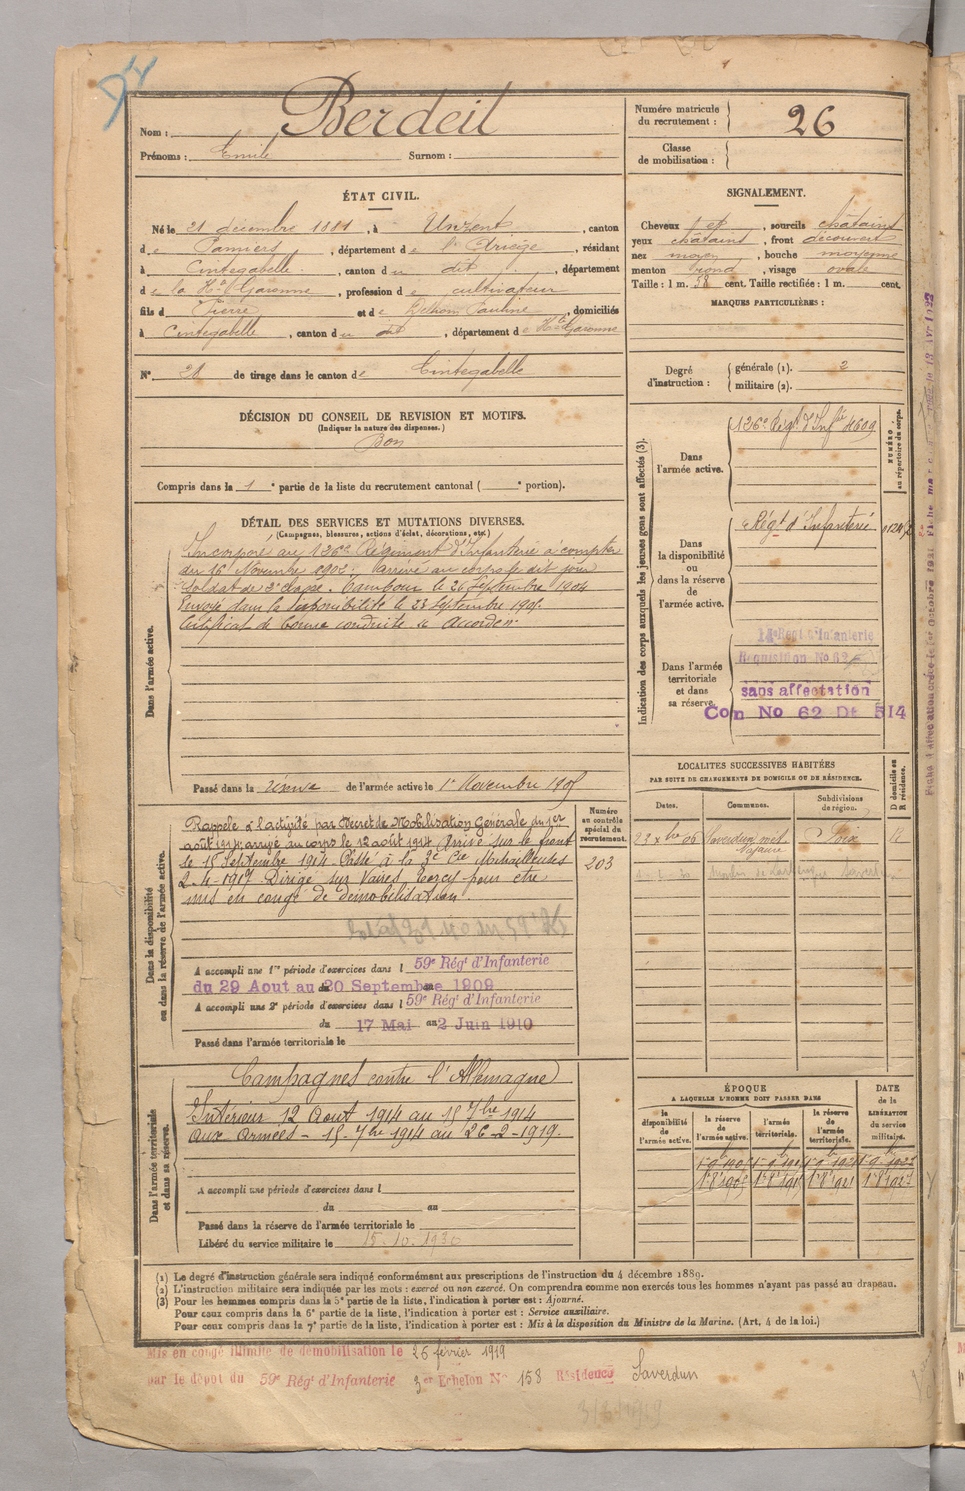 Nom : Berdeil
Prénoms : Emile Surnom :
Numéro matricule du recrutement : 26
Classe de mobilisation :
ÉTAT CIVIL.
Né le 21 décembre 1881, à Unzent, canton
de Pamiers, département de l'Ariège, résidant
à Cintegabelle, canton du dit, département
de la Hte Garonne, profession de cultivateur
fils de Pierre et de Dethom Pauline, domiciliés
à Cintegabelle, canton du dit, département de Hte Garonne
N° 21 de tirage dans le canton de Cintegabelle
DÉCISION DU CONSEIL DE REVISION ET MOTIFS.
(Indiquer la nature des dispenses.)
Bon
Compris dans la 1e partie de la liste du recrutement cantonal ( e portion).
SIGNALEMENT.
Cheveux et, sourcils châtains
yeux châtains, front découvert
nez moyen, bouche moyenne
menton rond, visage ovale
Taille : 1 m. 58 cent. Taille rectifiée : 1 m. cent.
MARQUES PARTICULIÈRES :
Degré d'instruction : générale (1). 2
militaire (2).
DÉTAIL DES SERVICES ET MUTATIONS DIVERSES.
(Campagnes, blessures, actions d'éclat, décorations, etc.)
Dans l'armée active.
Incorporé au 126e Régiment d'Infanterie à compter
du 16 Novembre 1902. Arrivé au corps le dit jour
soldat de 2e classe. Tambour le 26 Septembre 1904
Envoyé dans la disponibilité le 23 Septembre 1905.
Certificat de bonne conduite "Accordé"
Passé dans la réserve de l'armée active le 1er Novembre 1905
Indication des corps auxquels les jeunes gens sont affectés (3).
NUMÉRO au répertoire du corps.
Dans l'armée active.
126e Régt d'Infie 4609
Dans la disponibilité ou dans la réserve de l'armée active.
Régt d'Infanterie
Dans l'armée territoriale et dans sa réserve.
Régt d'Infanterie
Requisition No 62
sans affectation
Con No 62 Dt 514
Dans la disponibilité ou dans la réserve de l'armée active.
Numéro au contrôle spécial du recrutement.
203
Rappelé à l'activité par Décret de Mobilisation Générale du 1er
août 1914, arrivé au corps le 12 août 1914. Arrivé sur le front
le 15 Septembre 1914. Passé à la 3e Cie Mitrailleuses
2-4-1917 Dirigé sur Vaires Torcy pour être
mis en congé de démobilisation.
A accompli une 1re période d'exercices dans l 59e Régt d'Infanterie
du 29 Aout au 20 Septembre 1909
A accompli une 2e période d'exercices dans l 59e Régt d'Infanterie
du 17 Mai au 2 Juin 1910
Passé dans l'armée territoriale le
LOCALITES SUCCESSIVES HABITÉES
PAR SUITE DE CHANGEMENTS DE DOMICILE OU DE RÉSIDENCE.
Dates. Communes. Subdivisions de région. D domicile ou R résidence.
23 xbre 06 Saverdun Foix R
Dans l'armée territoriale et dans sa réserve.
Campagnes contre l'Allemagne
Intérieur 12 Aout 1914 au 15 7bre 1914
aux Armées - 15-7bre 1914 au 26-2-1919.
A accompli une période d'exercices dans l
du au
Passé dans la réserve de l'armée territoriale le
Libéré du service militaire le 15.10.1930
ÉPOQUE
A LAQUELLE L'HOMME DOIT PASSER DANS
la disponibilité de l'armée active. la réserve de l'armée active. l'armée territoriale. la réserve de l'armée territoriale.
DATE de la LIBÉRATION du service militaire.
(1) Le degré d'instruction générale sera indiqué conformément aux prescriptions de l'instruction du 4 décembre 1889.
(2) L'instruction militaire sera indiquée par les mots : exercé ou non exercé. On comprendra comme non exercés tous les hommes n'ayant pas passé au drapeau.
(3) Pour les hommes compris dans la 5e partie de la liste, l'indication à porter est : Ajourné.
Pour ceux compris dans la 6e partie de la liste, l'indication à porter est : Service auxiliaire.
Pour ceux compris dans la 7e partie de la liste, l'indication à porter est : Mis à la disposition du Ministre de la Marine. (Art. 4 de la loi.)
Mis en congé illimité de démobilisation le 26 février 1919
par le dépot du 59e Régt d'Infanterie 3e Echelon No 158 Résidence Saverdun